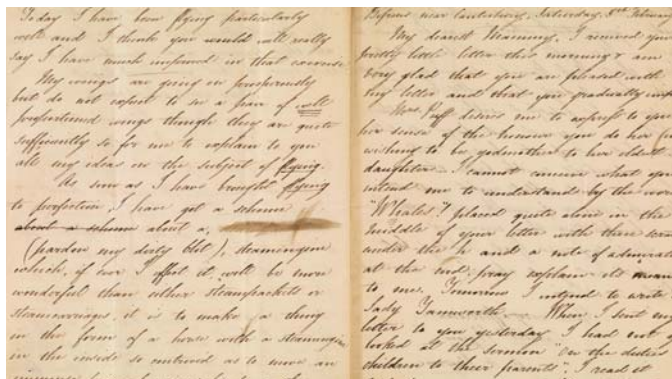 To day I have been flying particularly
well and I think you would will really
say I have much improved in that exercise
My wings are going on prosperously
but do not expect to see a pair of well
proportioned wings though they are quite
sufficiently so for me to explain to you
all my ideas on the subject of flying.
As soon as I have brought flying
to perfection, I have got a scheme
about a scheme about a
(pardon my dirty blot), steamengine
which, if ever I effect it will be more
wonderful than either steampackets or
steamcarriages, it is to make a thing
in the form of a horse with a steamengine
in the inside so contrived as to move an
near Canterbury, Saturday,
My dearest Mammy. I received your
pretty little letter this morning & am
very glad that you are pleased with
my letter and that you gradually
Mrs. Puff desires me to express to you
her sense of the honour you do her
wishing to be godmother to her eldest
daughter. I cannot conceive what you
intend me to understand by the word
"Whales"! placed quite alone in the
middle of your letter with three
under the h and a note of admiration
at the end, pray explain its
to me. Tomorrow I intend to write
Lady Tamworth. When I sent my
letter to you yesterday I had not
looked at the sermon "On the duties
children to their parents". I read it